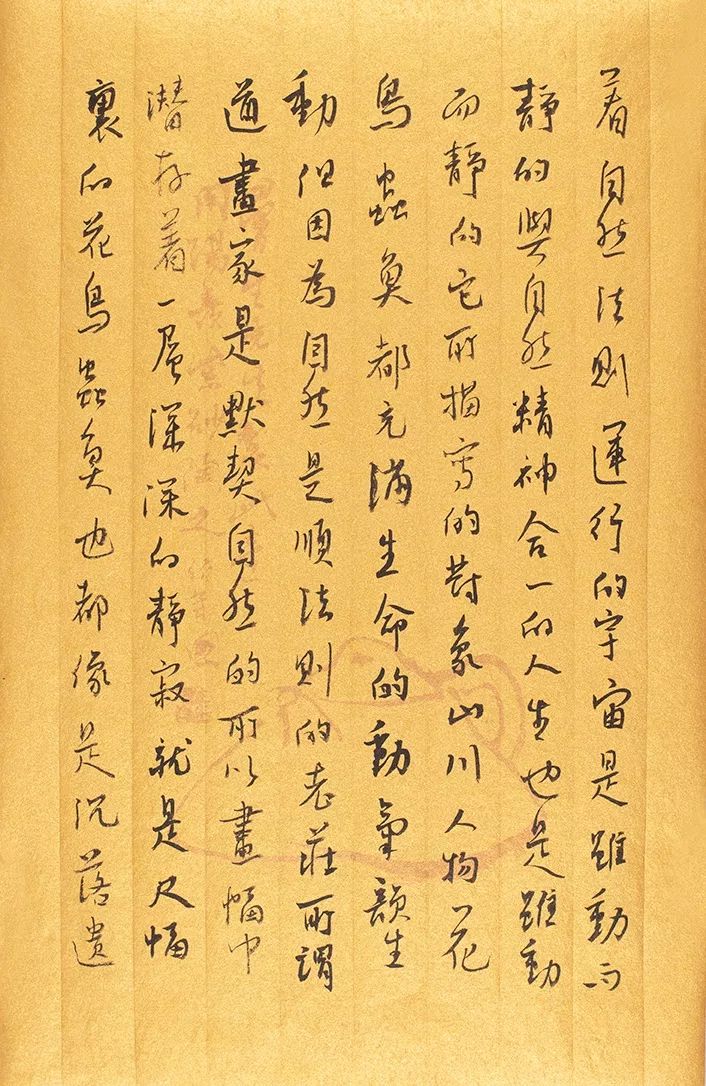 着自然法则運行的宇宙是雖動而
静的與自然精神合一的人生也是雖動
而静的它所描寫的對象山川人物花
鳥蟲魚都充滿生命的動氣韻生
動但因為自然是順法則的老莊所謂
道畫家是默契自然的所以畫幅中
潜存着一層深深的静寂就是尺幅
裏的花鳥蟲魚也都像是沉落遗